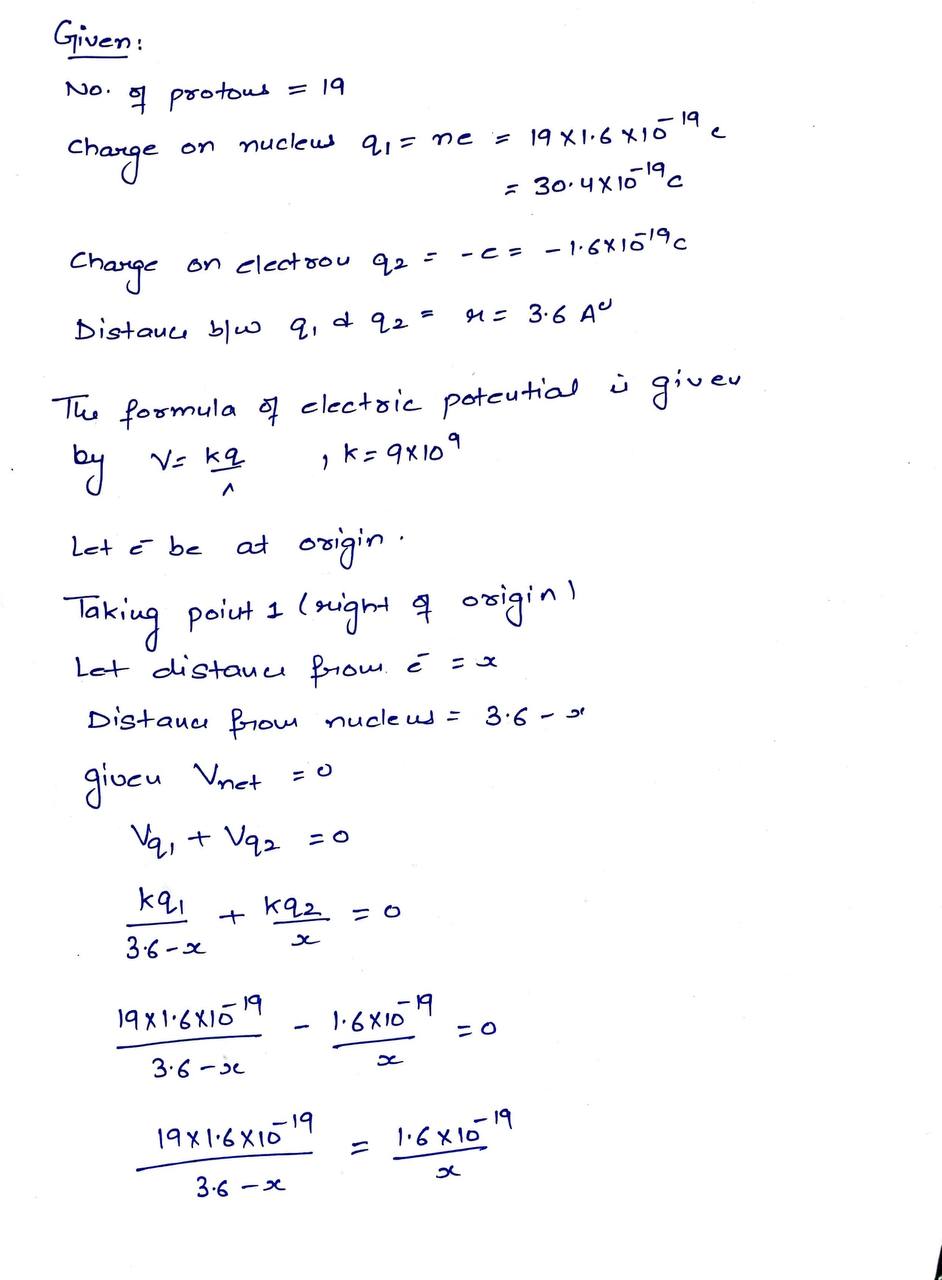 Given:
No. of protons = 19
Charge on nucleus q₁ = ne = 19 × 1.6 × 10⁻¹⁹ c
= 30.4 × 10⁻¹⁹ c
Charge on electron q₂ = -e = -1.6 × 10⁻¹⁹ c
Distance b/w q₁ & q₂ = r = 3.6 A°
The formula of electric potential is given
by V = kq/r , k = 9 × 10⁹
Let e⁻ be at origin.
Taking point 1 (right of origin)
Let distance from e⁻ = x
Distance from nucleus = 3.6 - x
given Vnet = 0
Vq₁ + Vq₂ = 0
kq₁/(3.6 - x) + kq₂/x = 0
19 × 1.6 × 10⁻¹⁹/(3.6 - x) - 1.6 × 10⁻¹⁹/x = 0
19 × 1.6 × 10⁻¹⁹/(3.6 - x) = 1.6 × 10⁻¹⁹/x